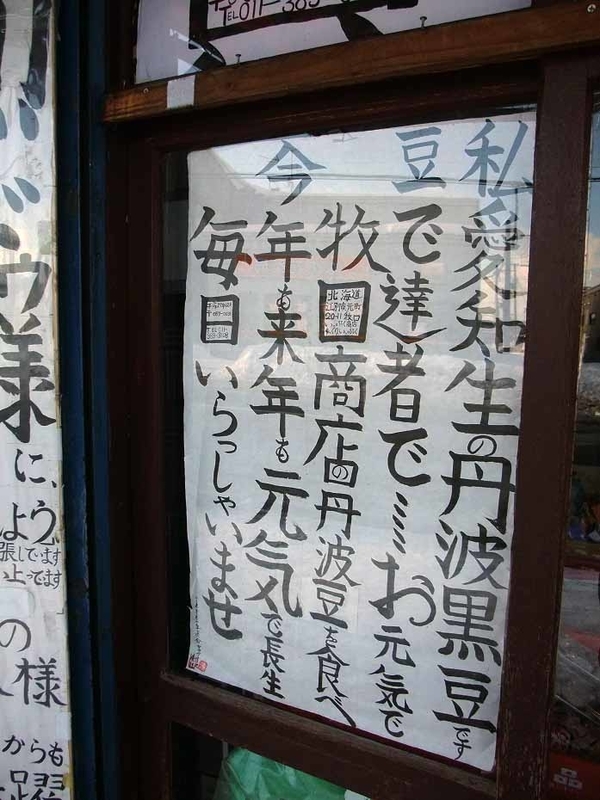 TEL011-385
私愛知生の丹波黒豆です
豆で達者で……お元気で
牧口商店の丹波豆を食べ
北海道
今年も来年も元気で長生
毎日いらっしゃいませ
様に、よう
張しています
止ってます
の
様
からも